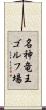 名神竜王
ゴルフ場